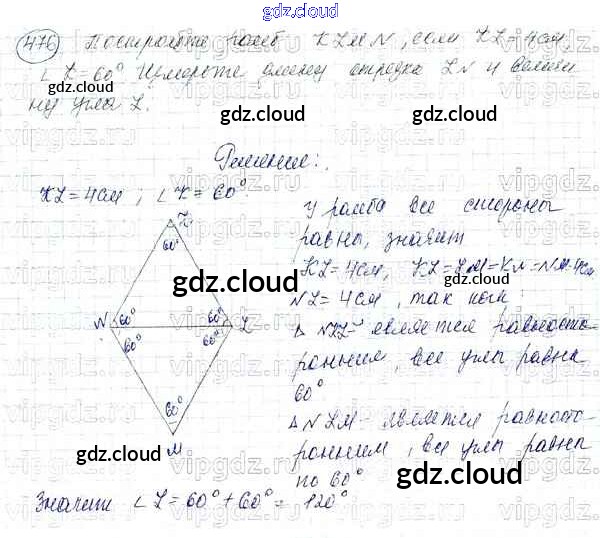 gdz.cloud
476 Постройте ромб KLMN, если KL = 4 см,
∠K = 60°. Измерьте длину отрезка LN и величи
ну угла L.
gdz.cloud
gdz.cloud
Решение:
KL = 4 см ; ∠K = 60°.
У ромба все стороны
равны, значит
KL = 4 см, KL = LM = KN = NM = 4 см
NL = 4 см, так как
△ NKL - является равносто-
ронним, все углы равны
60°
△ NLM - является равност-
ронним, все углы равны
по 60°
K
60°
gdz.cloud
N 60° 60° L
60° 60°
60°
M
gdz.cloud
gdz.cloud
gdz.cloud
gdz.cloud
Значит ∠L = 60° + 60° = 120°
vipgdz.